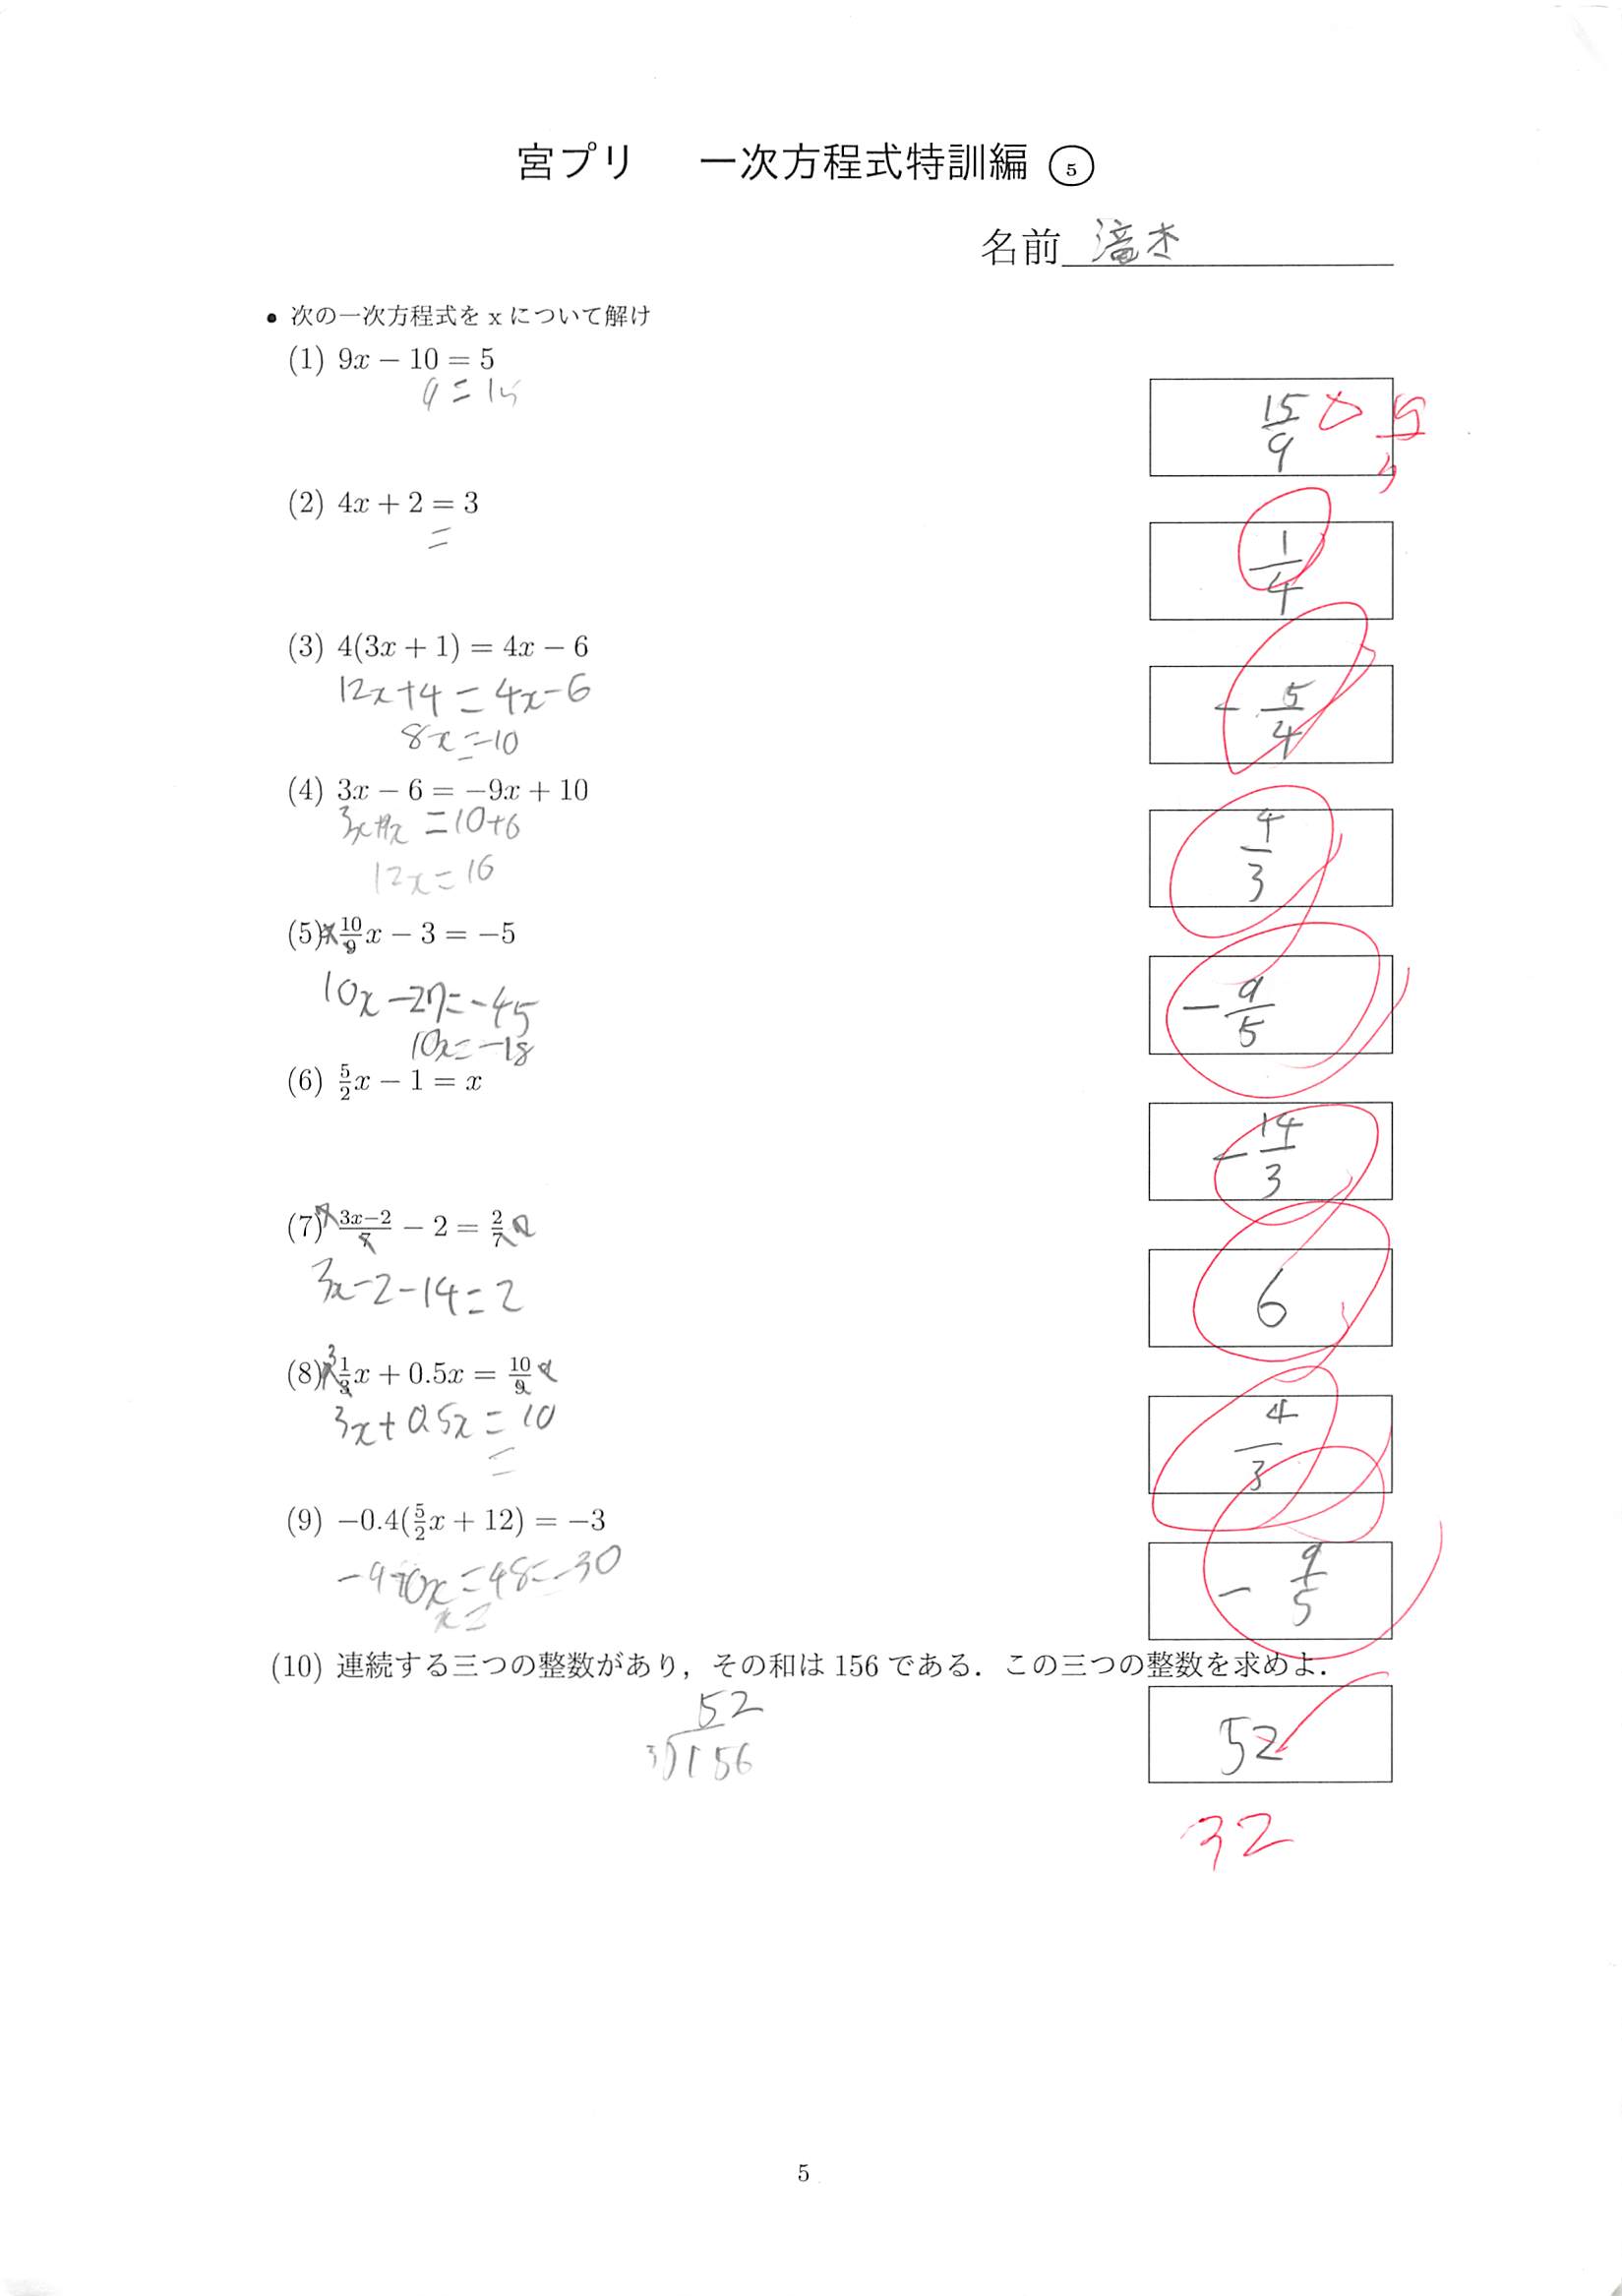 宮プリ 一次方程式特訓編 ⑤
名前 滝本
• 次の一次方程式を x について解け
(1) 9x − 10 = 5
9 = 15
15/9 5/3
(2) 4x + 2 = 3
=
1/4
(3) 4(3x + 1) = 4x − 6
12x+4 = 4x-6
8x = -10
- 5/4
(4) 3x − 6 = −9x + 10
3x+9x = 10+6
12x = 16
4/3
(5) 10/9 x − 3 = −5
10x - 27 = -45
10x = -18
- 9/5
(6) 5/2 x − 1 = x
- 14/3
(7) 7 3x−2/7 − 2 = 2/7
3x-2-14=2
6
(8) 3 1/3 x + 0.5x = 10/9
3x + 0.5x = 10
=
4/3
(9) −0.4(5/2 x + 12) = −3
x =
- 9/5
(10) 連続する三つの整数があり，その和は 156 である．この三つの整数を求めよ．
52
3)156
52
32
5